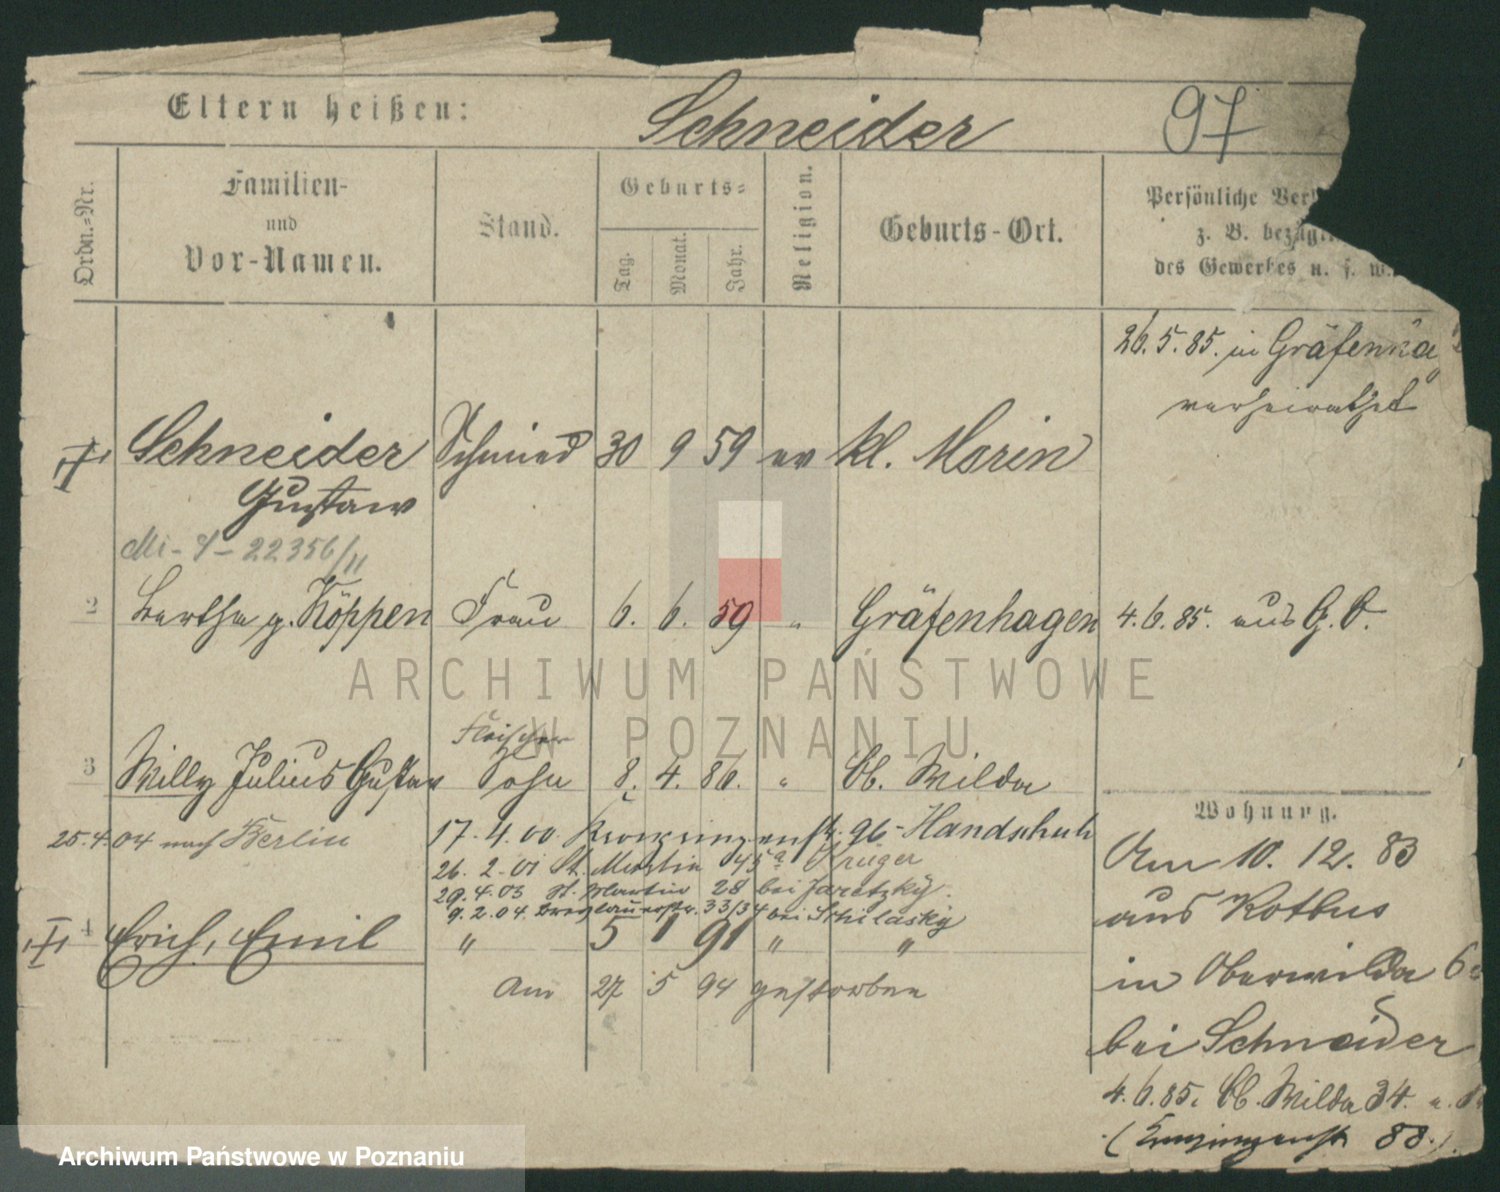 Eltern heißen: Schneider 97
Ordn.-Nr.
Familien-
und
Vor-Namen.
Stand.
Geburts-
Tag. Monat. Jahr.
Religion.
Geburts-Ort.
Persönliche
z. B.
des Gewerbes u. s. w.
26.5.85. in
verheirathet
Schneider Schmied 30 9 59 ev kl. Morin
Gustaw
22356/11
2 Bertha g. Köppen Frau 6. 6. 59 " Gräfenhagen 4.6.85. aus G.
Fleischer
3 Willy Julius Gustav Sohn 8. 4. 86. " Ob. Wilda
25.4.04 nach Berlin
17.4.00 96 Handschuh
26.2.01 St. Martin 45a Krüger
29.4.03 St. Martin 28 bei Jaretzky.
9.2.04 Breslauerstr. 33/34 bei
4 Erich, Emil " 5 1 91 " "
Am 27 5 94 gestorben
Wohnung.
Am 10. 12. 83
aus Kotbus
in Oberwilda 6
bei Schneider
4.6.85. Ob. Wilda 34.
88.)
ARCHIWUM PAŃSTWOWE
W POZNANIU
Archiwum Państwowe w Poznaniu